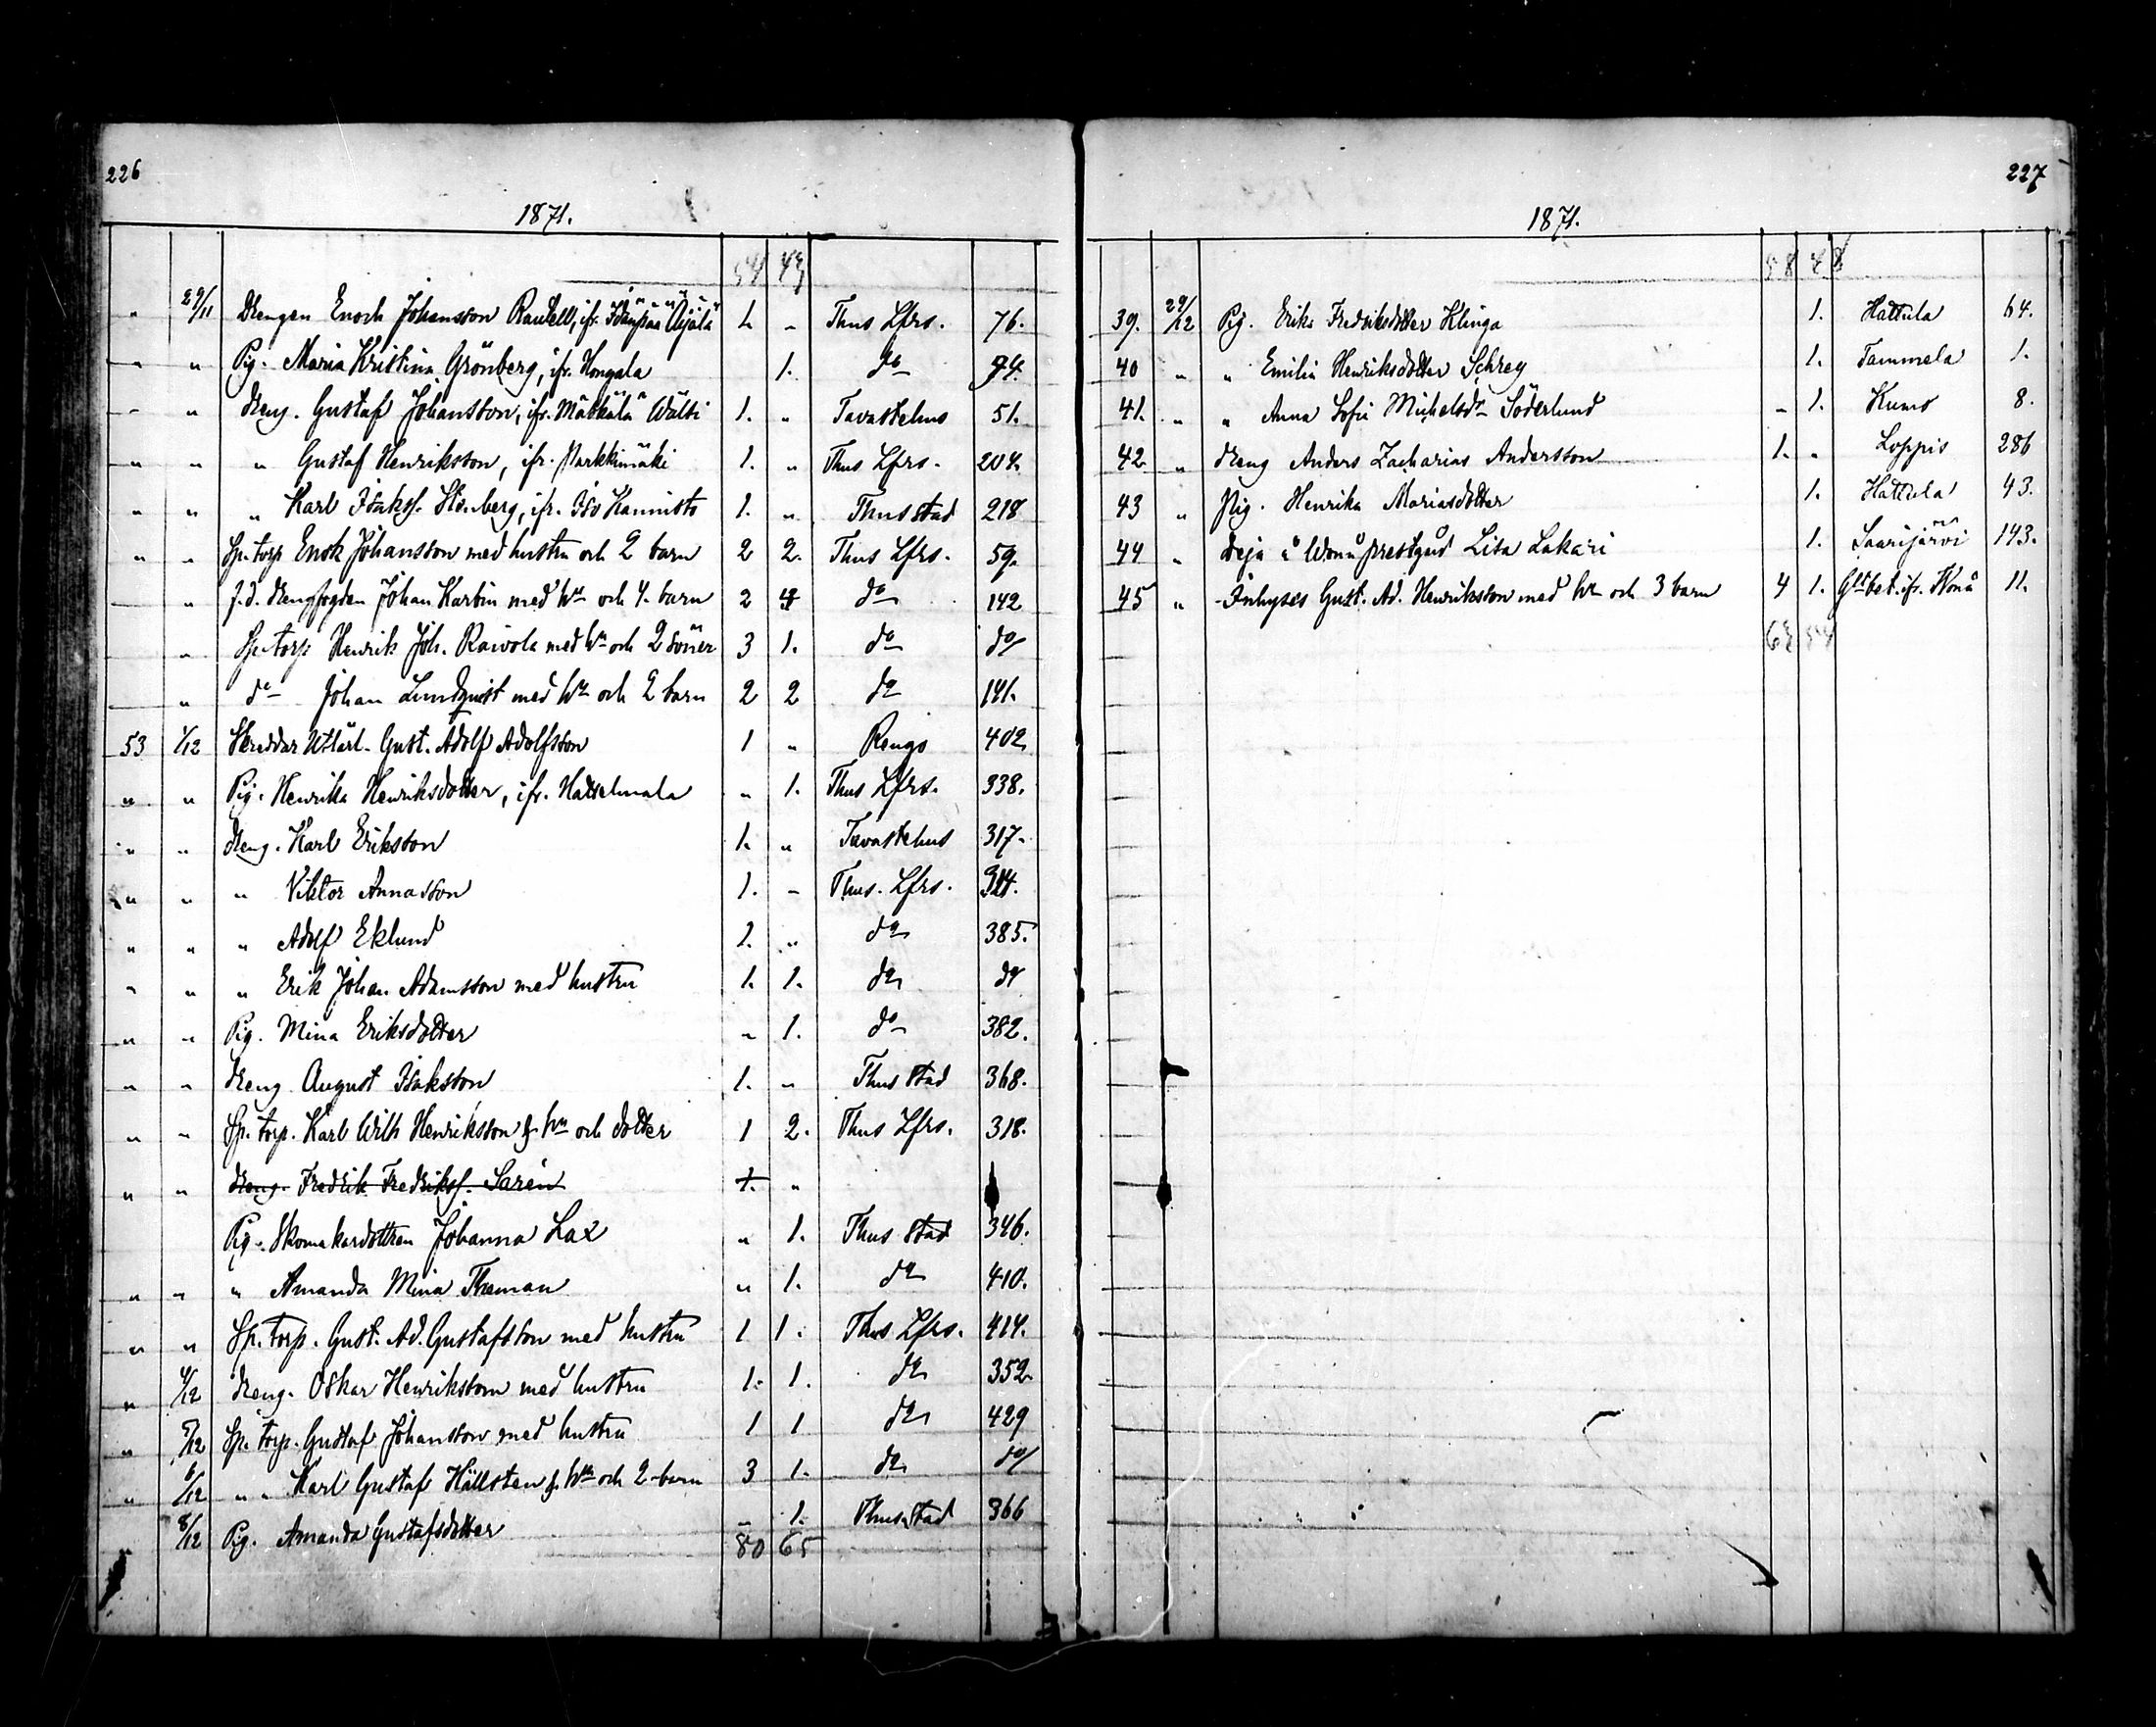 226
1871.
54 49
" 29/11 Drengen Enoch Johansson Rautell, ifr. Idänpää Äijälä 1. " Thus Lfrs. 76.
" " Pig. Maria Kristina Grönberg, ifr. Hongala 1. do 74.
" " Dreng. Gustaf Johansson, ifr. Mäskälä Wälli 1. " Tavastehus 51.
" " " Gustaf Henriksson, ifr. Parkkimäki 1. " Thus Lfrs. 204.
" " " Karl Isaksf. Stenberg, ifr. Iso Kannisto 1. " Thus stad 218
" " Sp. torp Enok Johansson med hustru och 2 barn 2 2. Thus Lfrs. 59.
" f.d. Drengfogden Johan Karlin med hu och 4. barn 2 4 do 142
" Sp. torp. Henrik Joh. Raivola med hu och 2 söner 3 1. do do
" do Johan Lundqvist med hu och 2 barn 2 2 do 141.
53 1/12 Skreddar Utlärl. Gust. Adolf Adolfsson 1 " Rengo 402
" " Pig. Henrika Henriksdotter, ifr. Hattelmala " 1. Thus Lfrs. 338.
" " Dreng. Karl Eriksson 1. " Tavastehus 317.
" " " Viktor Annasson 1. " Thus. Lfrs.
" " " Adolf Eklund 1. " do 385.
" " " Erik Johan Adamsson med hustru 1. 1. do do
" " Pig. Mina Eriksdotter " 1. do 382.
" " Dreng August Isaksson 1. " Thus stad 368.
" " Sp. torp. Karl Wilh Henriksson hu och dotter 1 2. Thus Lfrs. 318.
" " Dreng. Fredrik Fredriksf. Sarén 1. "
Pig. Skomakardottren Johanna Lax " 1. Thus stad 346.
" " " Amanda Mina Theman " 1. do 410.
" " Sp. torp. Gust. Ad. Gustafsson med hustru 1 1. Thus Lfrs. 414.
" 4/12 Dreng. Oskar Henriksson med hustru 1. 1. do 352
" 5/12 Sp. torp. Gustaf Johansson med hustru 1 1 do 429
" 6/12 " " Karl Gustaf Hällsten hu och 2 barn 3 1. do do
8/12 Pig. Amanda Gustafsdotter " 1. Thus stad 366
80 65
227
1871.
58 48
39. 29/12 Pig. Erika Fredriksdotter Klinga 1. Hattula 64.
40 " " Emilia Henriksdotter Schrey 1. Tammela 1.
41. " " Anna Sofia Michelsdr Söderlund " 1. Kumo 8.
42 " Dreng Anders Zacharias Andersson 1. " Loppis 286
43 " Pig. Henrika Mariasdotter 1. Hattula 43.
44 " Deja å Wånå prestgård Lisa Lakari 1. Saarijärvi 143.
45 " Inhyses Gust. Ad. Henriksson med hu och 3 barn 4 1. bet. ifr. Wånå 11.
63 54